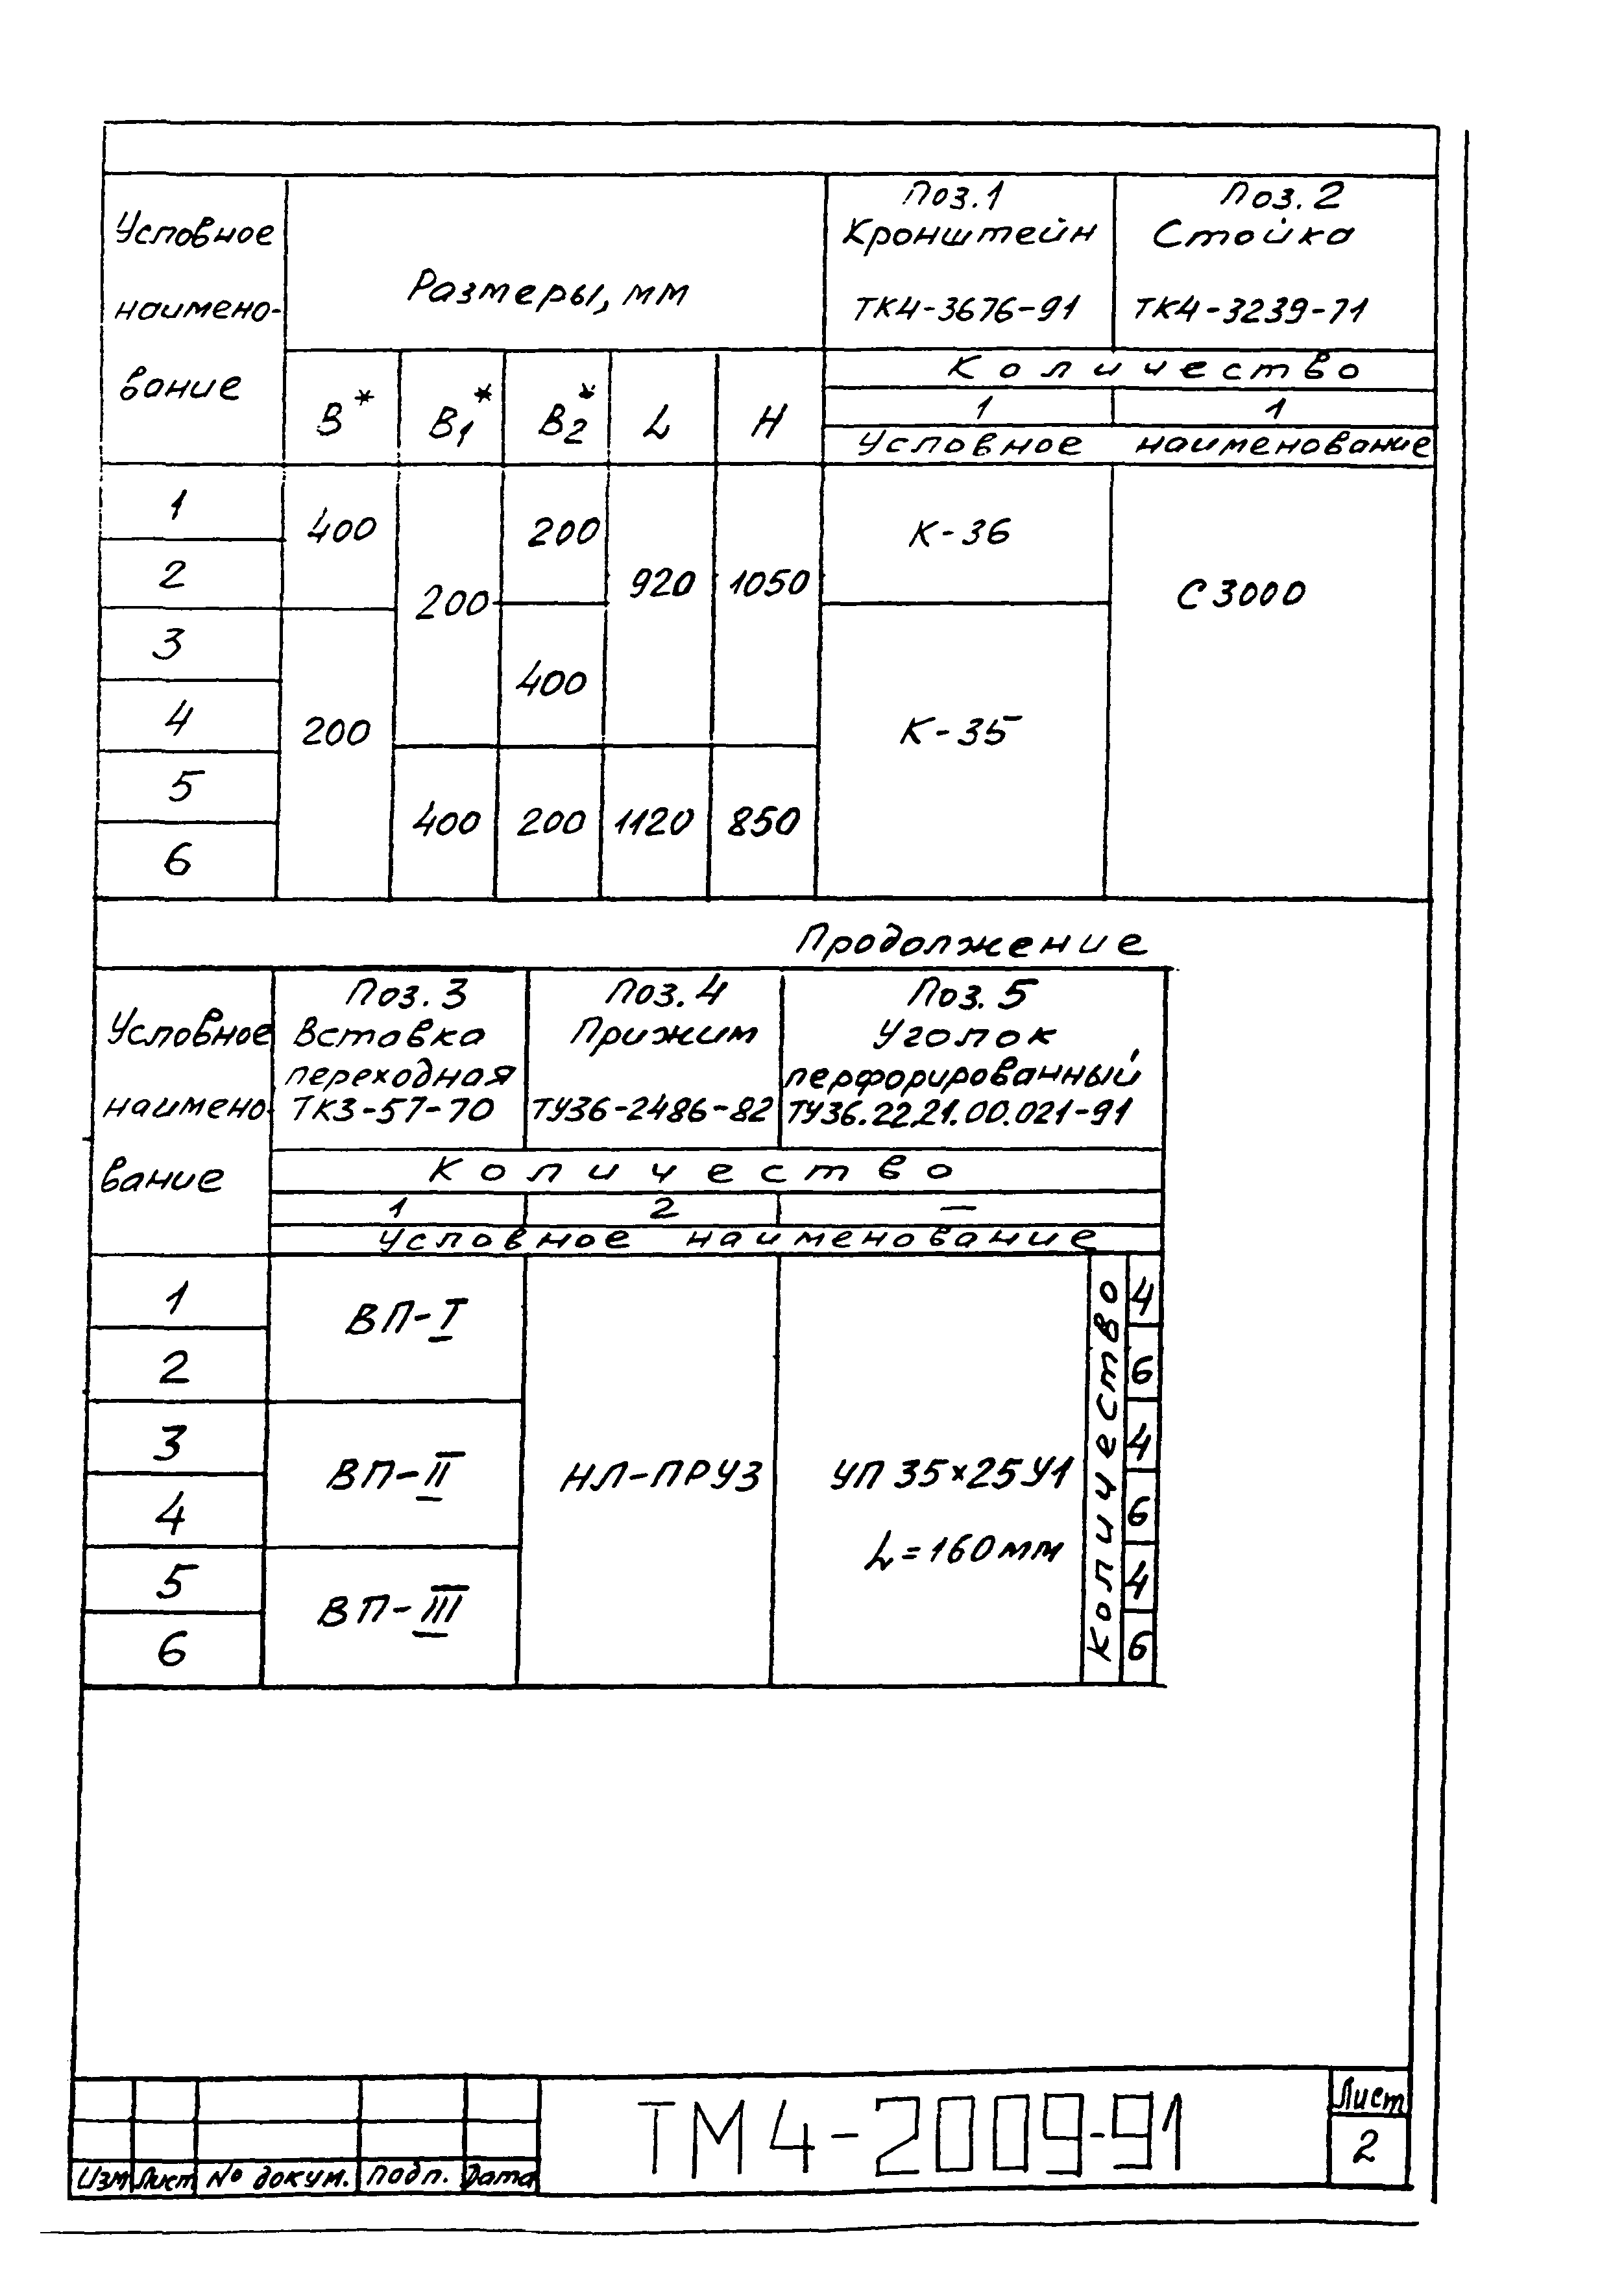 Условное
наимено-
вание
Размеры, мм
Поз.1
Кронштейн
ТК4-3676-91
Поз.2
Стойка
ТК4-3239-71
В* В1* В2* L H
Количество
1 1
Условное наименование
1
2
3
4
5
6
400
200
200
400
200
400
200
920
1120
1050
850
К-36
К-35
С3000
Продолжение
Условное
наимено-
вание
Поз.3
Вставка
переходная
ТК3-57-70
Поз.4
Прижим
ТУ36-2486-82
Поз.5
Уголок
перфорированный
ТУ36.22.21.00.021-91
Количество
1 2 —
Условное наименование
1
2
3
4
5
6
ВП-I
ВП-II
ВП-III
НЛ-ПРУЗ
УП 35×25У1
L=160мм
Количество
4
6
4
6
4
6
Изм Лист № докум. Подп. Дата
ТМ4-2009-91
Лист
2